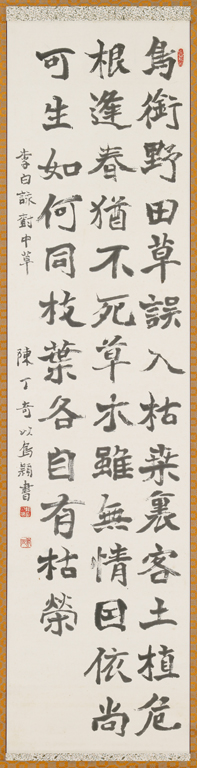 鳥銜野田草誤入枯桑裏客土植危
根逢春猶不死草木雖無情因依尚
可生如何同枝葉各自有枯榮
李白詠對中草 陳丁奇以鳥穎書